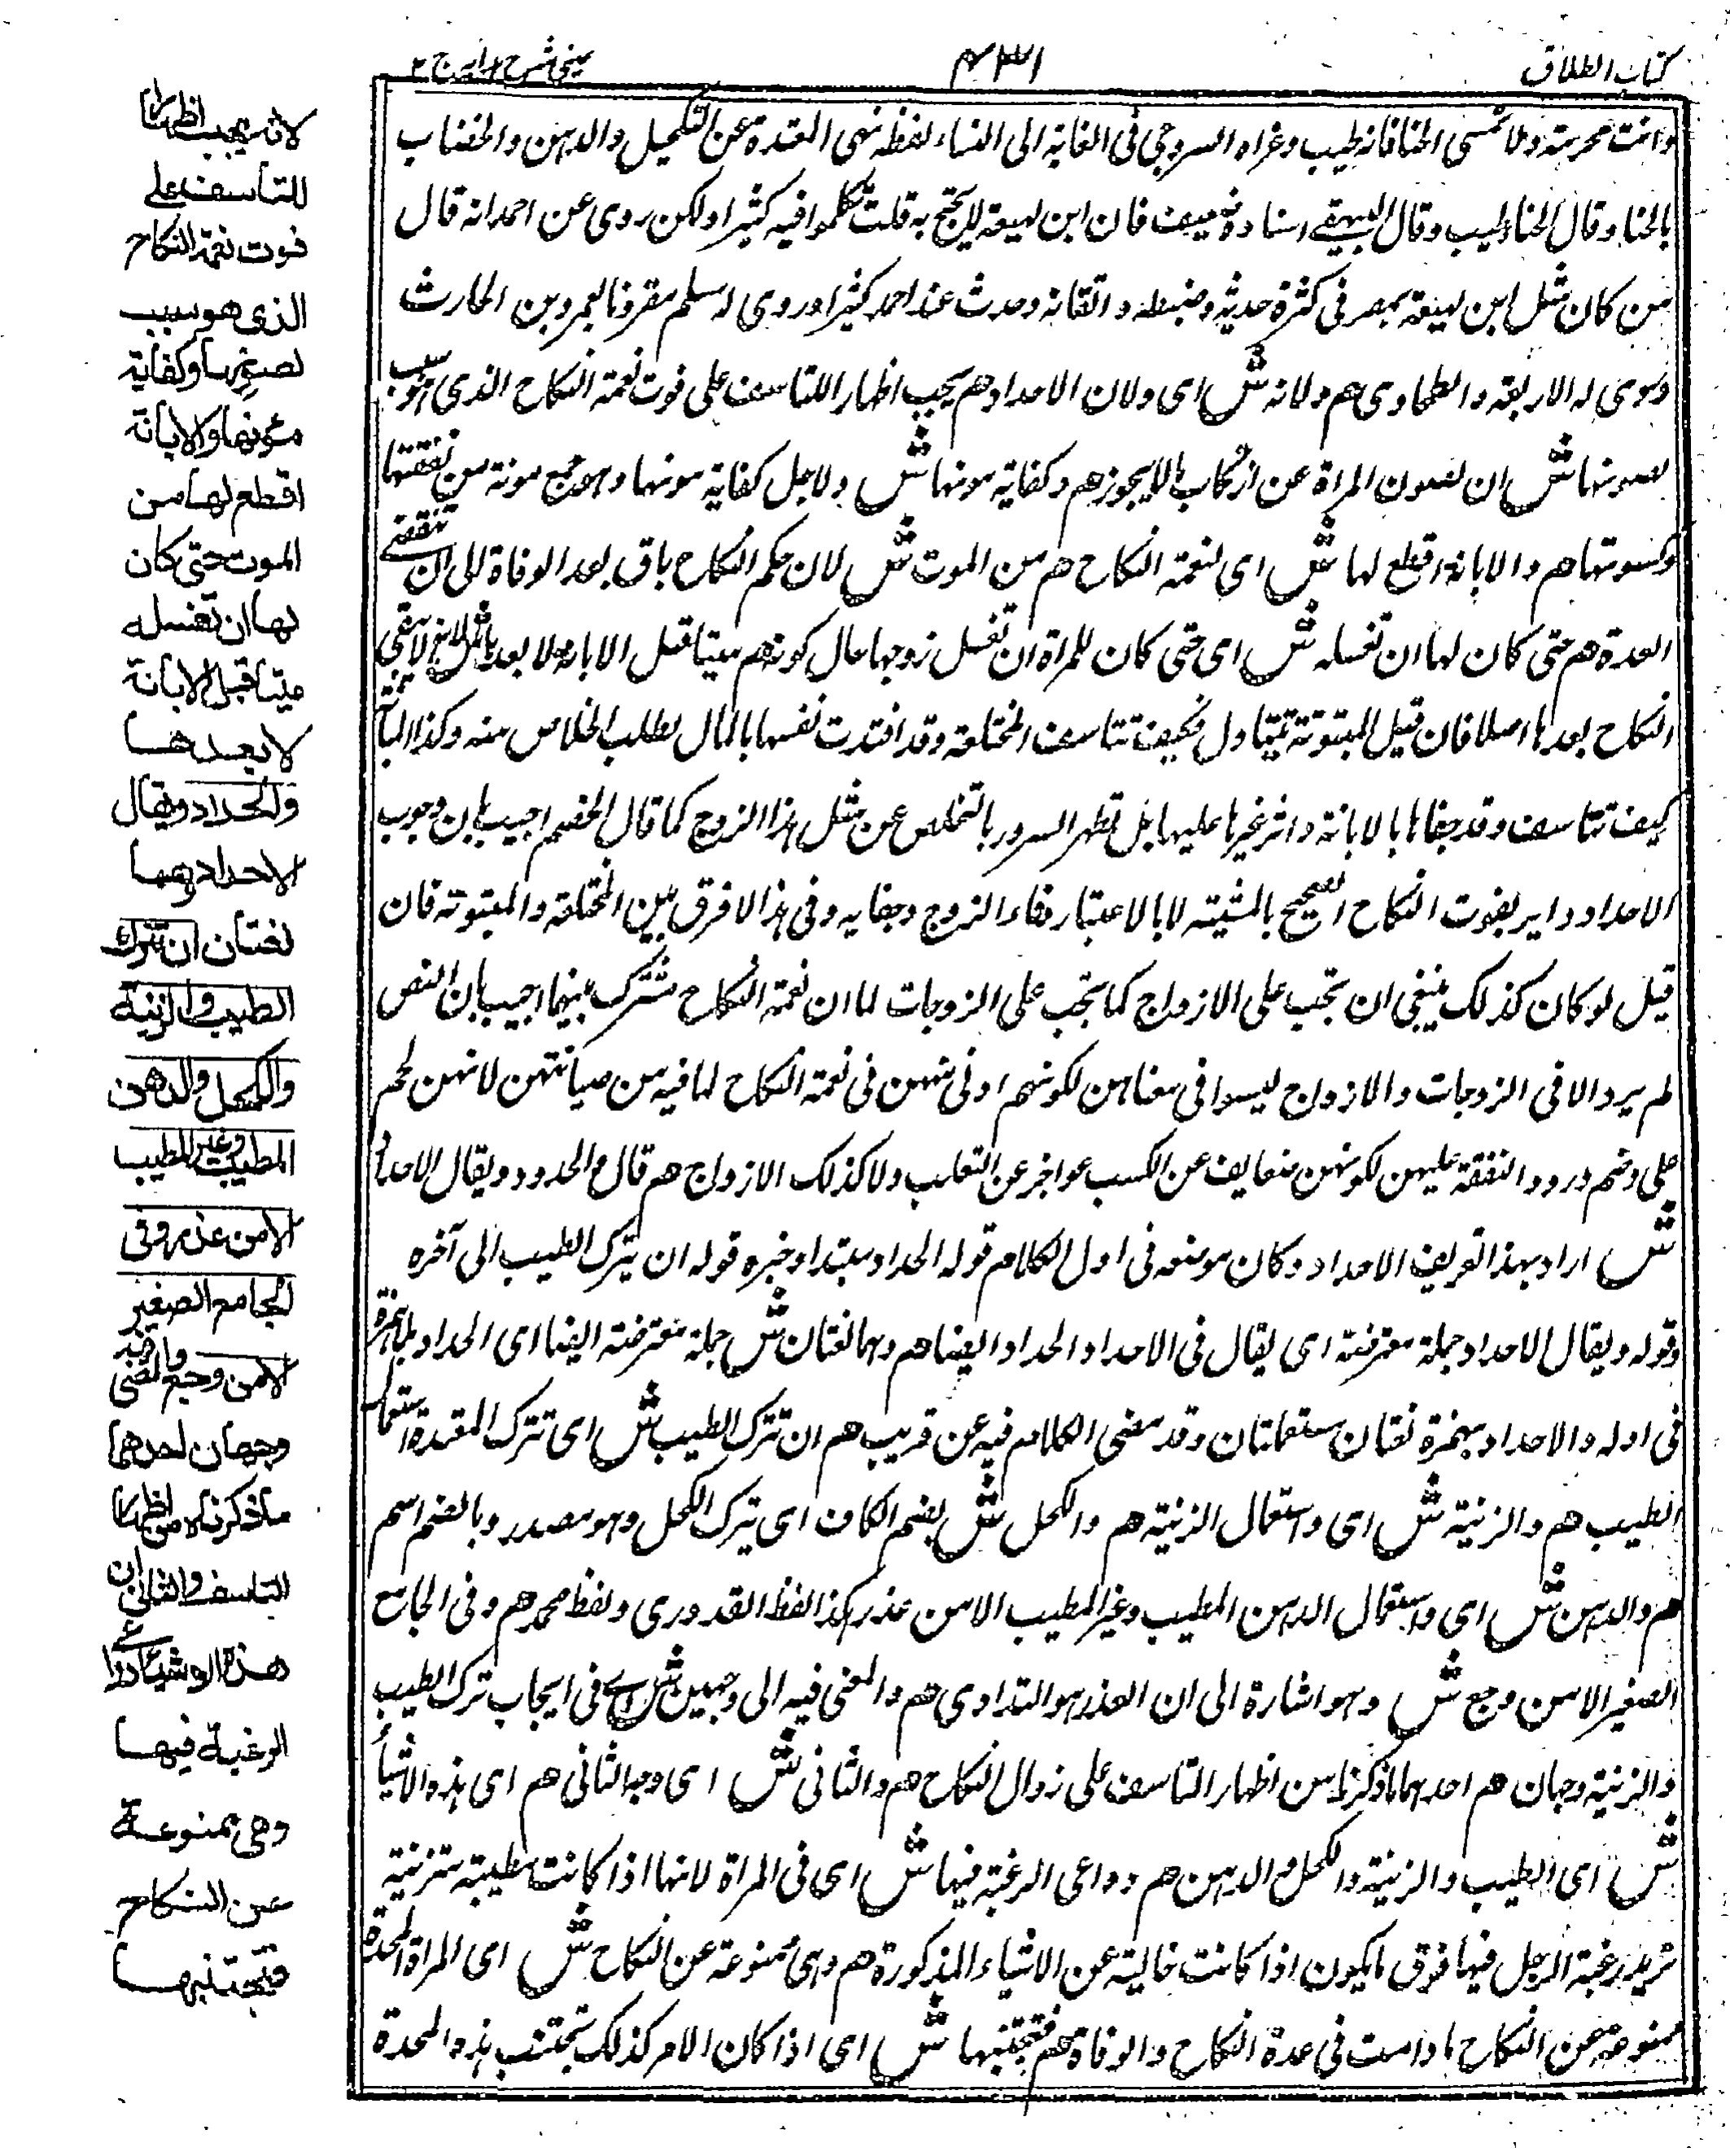 كتاب الطلاق
٤٣١
عينى شرح هدايه ج ٢
وانت محرمة ولا تمسى الحنا فانه طيب وعزاه السروجى فى الغاية الى النساء لفظه نهى المعتدة عن التكحيل والدهن والخضاب
بالحنا وقال الحناء طيب وقال البيهقے اسناده ضعيف فان ابن لهيعة لا يحتج به قلت تكلموا فيه كثيرا ولكن روى عن احمد انه قال
من كان مثل ابن لهيعة بمصر فى كثرة حديثه وضبطه واتقانه وحدث عنه احمد كثيرا وروى له مسلم مقرونا بعمرو بن الحارث
وروى له الاربعة والطحاوى هم ولانه ش اى ولان الاحداد هم يجب اظهارا للتاسف على فوت نعمة النكاح الذى هو سبب
لصونها ش ان لصون المراة عن ارتكاب ما لا يجوز هم وكفاية مونها ش ولاجل كفاية مونها وهو جمع مونة من نفقتها
وكسوتها هم والابانة اقطع لها ش اى لنعمة النكاح هم من الموت ش لان حكم النكاح باق بعد الوفاة الى ان تنقضے
العدة هم حتى كان لها ان تغسله ش اى حتى كان للمراة ان تغسل زوجها حال كونه هم ميتا قبل الابانة لا بعدها ش لانه لا يبقى
النكاح بعدها اصلا فان قيل المبتوتة تتناول فكيف تتاسف المختلعة وقد افتدت نفسها بالمال لطلب الخلاص منه وكذا المبانة
كيف تتاسف وقد جفاها بالابانة واثر غيرها عليها بل تظهر السرور بالتخلص عن مثل هذا الزوج كما قال الخصم اجيب بان وجوب
الاحداد داير بفوت النكاح الصحيح بالمشيته لا بالاعتبار وفاء الزوج وجفايه وفى هذا لا فرق بين المختلعة والمبتوتة فان
قيل لو كان كذلك ينبغى ان تجب على الازواج كما تجب على الزوجات لما ان نعمة النكاح مشترك بينهما اجيب بان النص
لم يرد الا فى الزوجات والازواج ليسوا فى معناهن لكونهم ادنى منهن فى نعمة النكاح لما فيه من صيانتهن لانهن لحم
على وضم ودرور النفقة عليهن لكونهن ضعايف عن الكسب عواجز عن التقلب ولا كذلك الازواج هم قال والحداد ويقال الاحداد
ش اراد بهذا تعريف الاحداد وكان موضعه فى اول الكلام قوله الحداد مبتدا وخبره قوله ان يترك الطيب الى آخره
وقوله ويقال الاحداد جملة معترضة اى يقال فى الاحداد الحداد ايضا هم وهما لغتان ش جملة معترضة ايضا اى الحداد بلا همزة
فى اوله والاحداد بهمزة لغتان مستعملتان وقد مضى الكلام فيه عن قريب هم ان تترك الطيب ش اى تترك المعتدة استعمال
الطيب هم والزينة ش اى واستعمال الزينة هم والكحل ش بضم الكاف اى يترك الكحل وهو مصدر وبالضم اسم
هم والدهن ش اى واستعمال الدهن المطيب وغير المطيب الا من عذر هكذا لفظ القدورى ولفظ محمد هم وفى الجامع
الصغير الا من وجع ش وهو اشارة الى ان العذر هو التداوى هم والمعنى فيه الى وجهين ش اے فى ايجاب ترك الطيب
والزينة وجهان هم احدهما ما ذكرنا من اظهار التاسف على زوال النكاح هم والثانى ش اى وجه الثانى هم اى هذه الاشياء
ش اى الطيب والزينة والكحل والدهن هم دواعى الرغبة فيها ش اى فى المراة لانها اذا كانت مطيبة متزينة
تزيد رغبة الرجل فيها فوق ما يكون اذا كانت خالية عن الاشياء المذكورة هم وهى ممنوعة عن النكاح ش اى المراة المحدة
ممنوعة عن النكاح ما دامت فى عدة النكاح والوفاة هم فتجتنبها ش اى اذا كان الامر كذلك تجتنب هذه المحدة
لانه يجب اظهارا
للتاسف على
فوت نعمة النكاح
الذى هو سبب
لصونها وكفاية
مؤنها والابانة
اقطع لها من
الموت حتى كان
لها ان تغسله
ميتا قبل الابانة
لا بعدها
والحداد ويقال
الاحداد وهما
لغتان ان تترك
الطيب والزينة
والكحل والدهن
المطيب وغير المطيب
الا من عذر وفى
الجامع الصغير
الا من وجع والمعنى فيه
وجهان احدهما
ما ذكرناه من اظهار
التاسف والثانى ان
هذه الاشياء دواعى
الرغبة فيها
وهى ممنوعة
عن النكاح
فتجتنبها